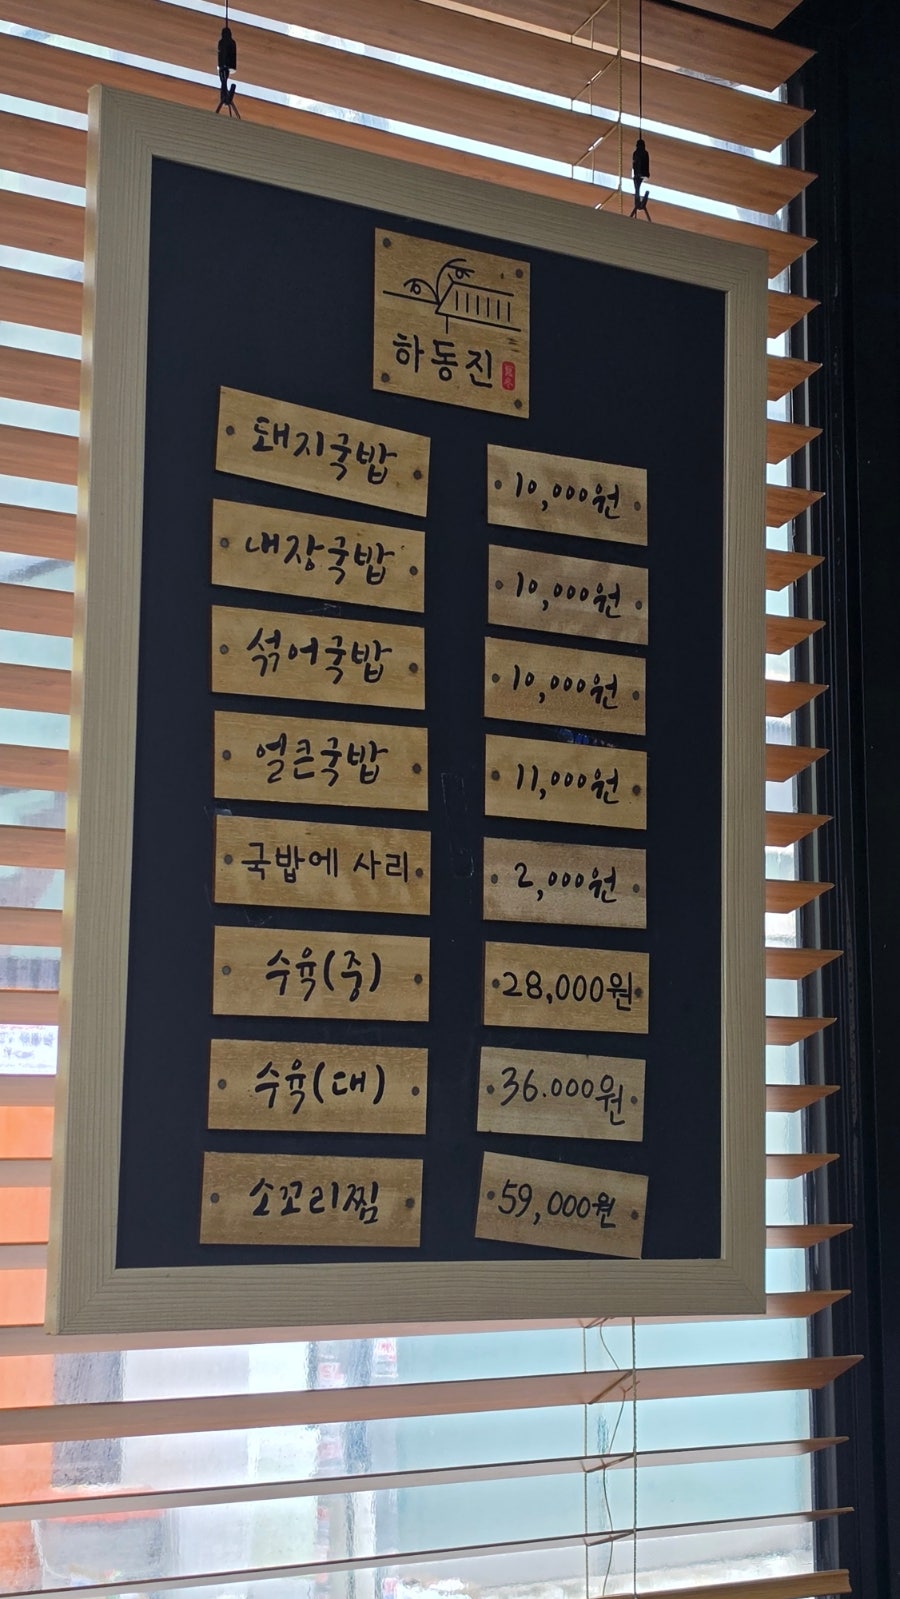 하동진
돼지국밥 10,000원
내장국밥 10,000원
섞어국밥 10,000원
얼큰국밥 11,000원
국밥에 사리 2,000원
수육(중) 28,000원
수육(대) 36.000원
소꼬리찜 59,000원